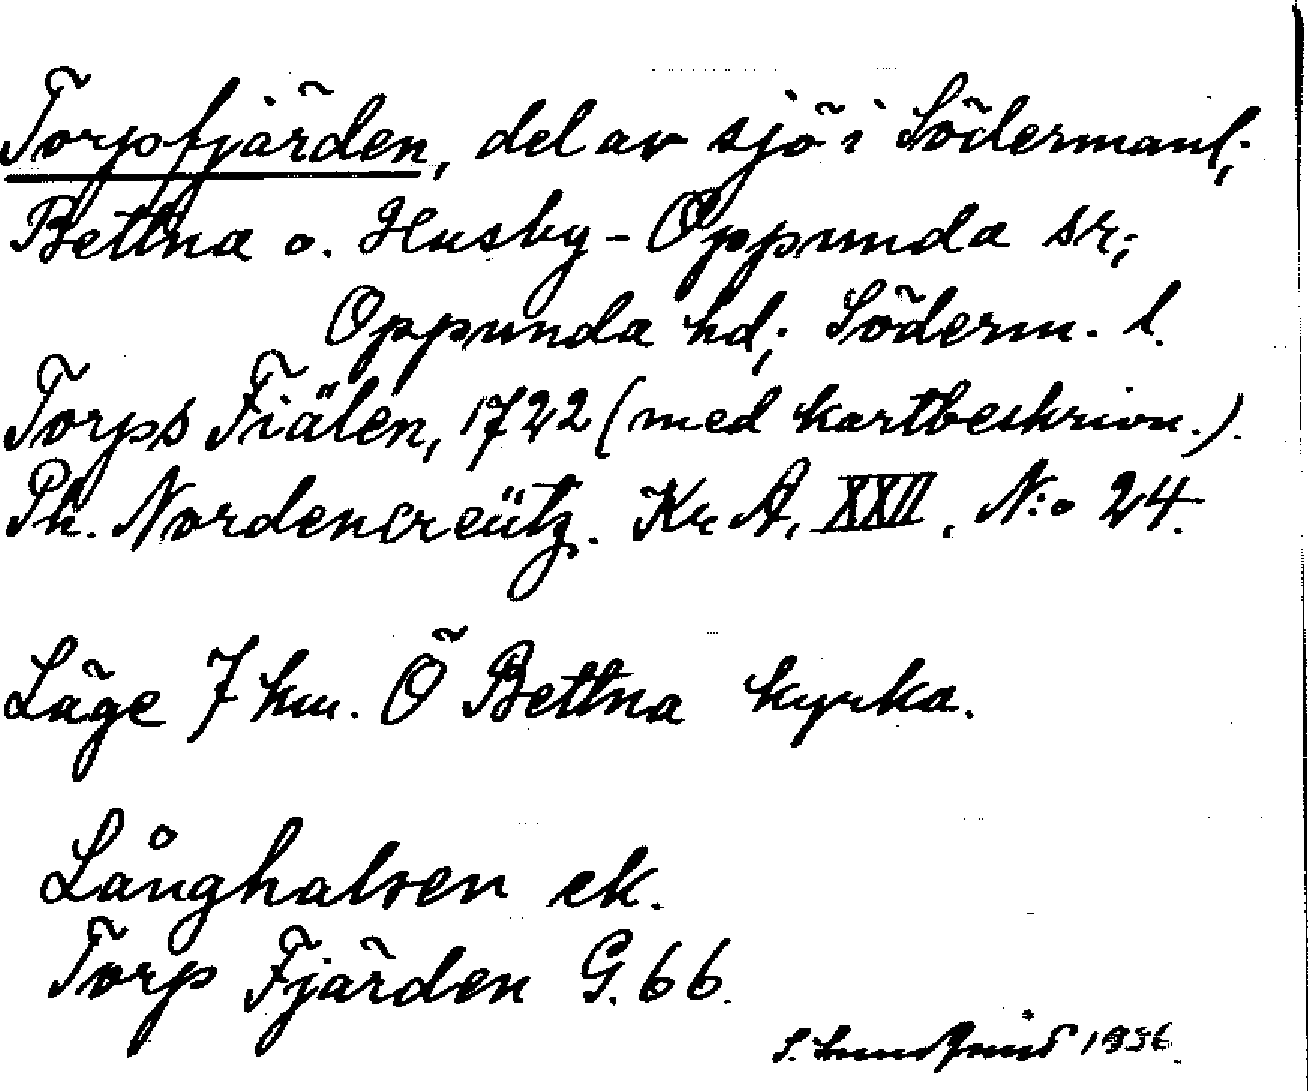 Torpfjärden, del av sjö i Södermanl;
Bettna o. Husby-Oppunda sr;
Oppunda hd; Söderm. l.
Torps Fiälen, 1722 (med kartbeskrivn.).
Ph. Nordencreütz. Kr A, XXII, N:o 24.
Läge 7 km. Ö Bettna kyrka.
Långhalsen ek.
Torp Fjärden G. 66.
S. 1936.